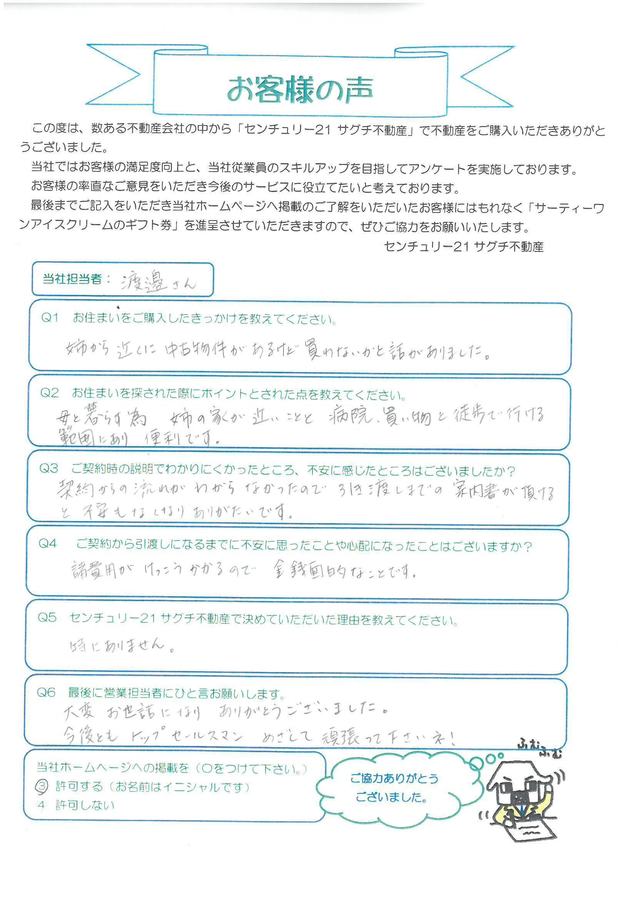 お客様の声
この度は、数ある不動産会社の中から「センチュリー21 サグチ不動産」で不動産をご購入いただきありがと
うございました。
当社ではお客様の満足度向上と、当社従業員のスキルアップを目指してアンケートを実施しております。
お客様の率直なご意見をいただき今後のサービスに役立てたいと考えております。
最後までご記入をいただき当社ホームページへ掲載のご了解をいただいたお客様にはもれなく「サーティーワ
ンアイスクリームのギフト券」を進呈させていただきますので、ぜひご協力をお願いいたします。
センチュリー21 サグチ不動産
当社担当者： 渡邉さん
Q1 お住まいをご購入したきっかけを教えてください。
姉から近くに中古物件があるけど買わないかと話がありました。
Q2 お住まいを探された際にポイントとされた点を教えてください。
母と暮らす為 姉の家が近いことと 病院、買い物と徒歩で行ける
範囲にあり 便利です。
Q3 ご契約時の説明でわかりにくかったところ、不安に感じたところはございましたか？
契約からの流れがわからなかったので 引き渡しまでの案内書が頂ける
と 不安もなくなりありがたいです。
Q4 ご契約から引渡しになるまでに不安に思ったことや心配になったことはございますか？
諸費用がけっこうかかるので 金銭面的なことです。
Q5 センチュリー21 サグチ不動産で決めていただいた理由を教えてください。
特にありません。
Q6 最後に営業担当者にひと言お願いします。
大変 お世話になり ありがとうございました。
今後とも トップセールスマン めざして 頑張って下さいネ！
当社ホームページへの掲載を（○をつけて下さい。）
3 許可する（お名前はイニシャルです）
4 許可しない
ご協力ありがとう
ございました。
ふむ
ふむ